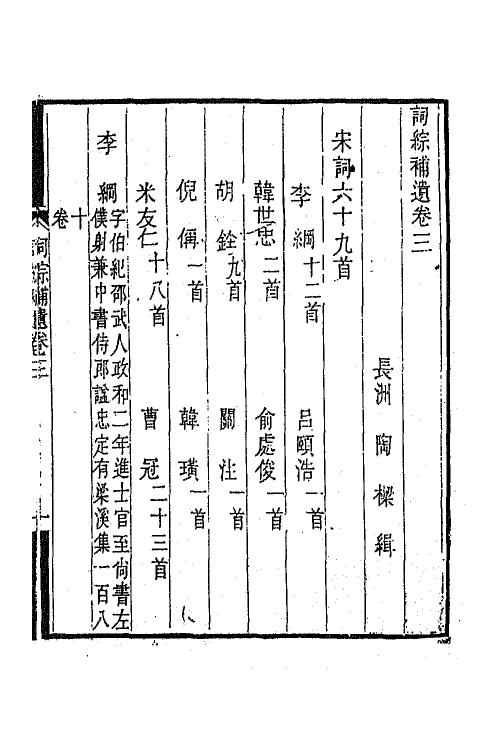 詞綜補遺卷三
長洲　陶樑　緝
宋詞六十九首
李綱十二首　呂頤浩一首
韓世忠二首　俞處俊一首
胡銓九首　關注一首
倪偁一首　韓璜一首
米友仁十八首　曹冠二十三首
李綱字伯紀邵武人政和二年進士官至尙書左
僕射兼中書侍郎諡忠定有梁溪集一百八
十
卷
詞綜補遺卷三
一